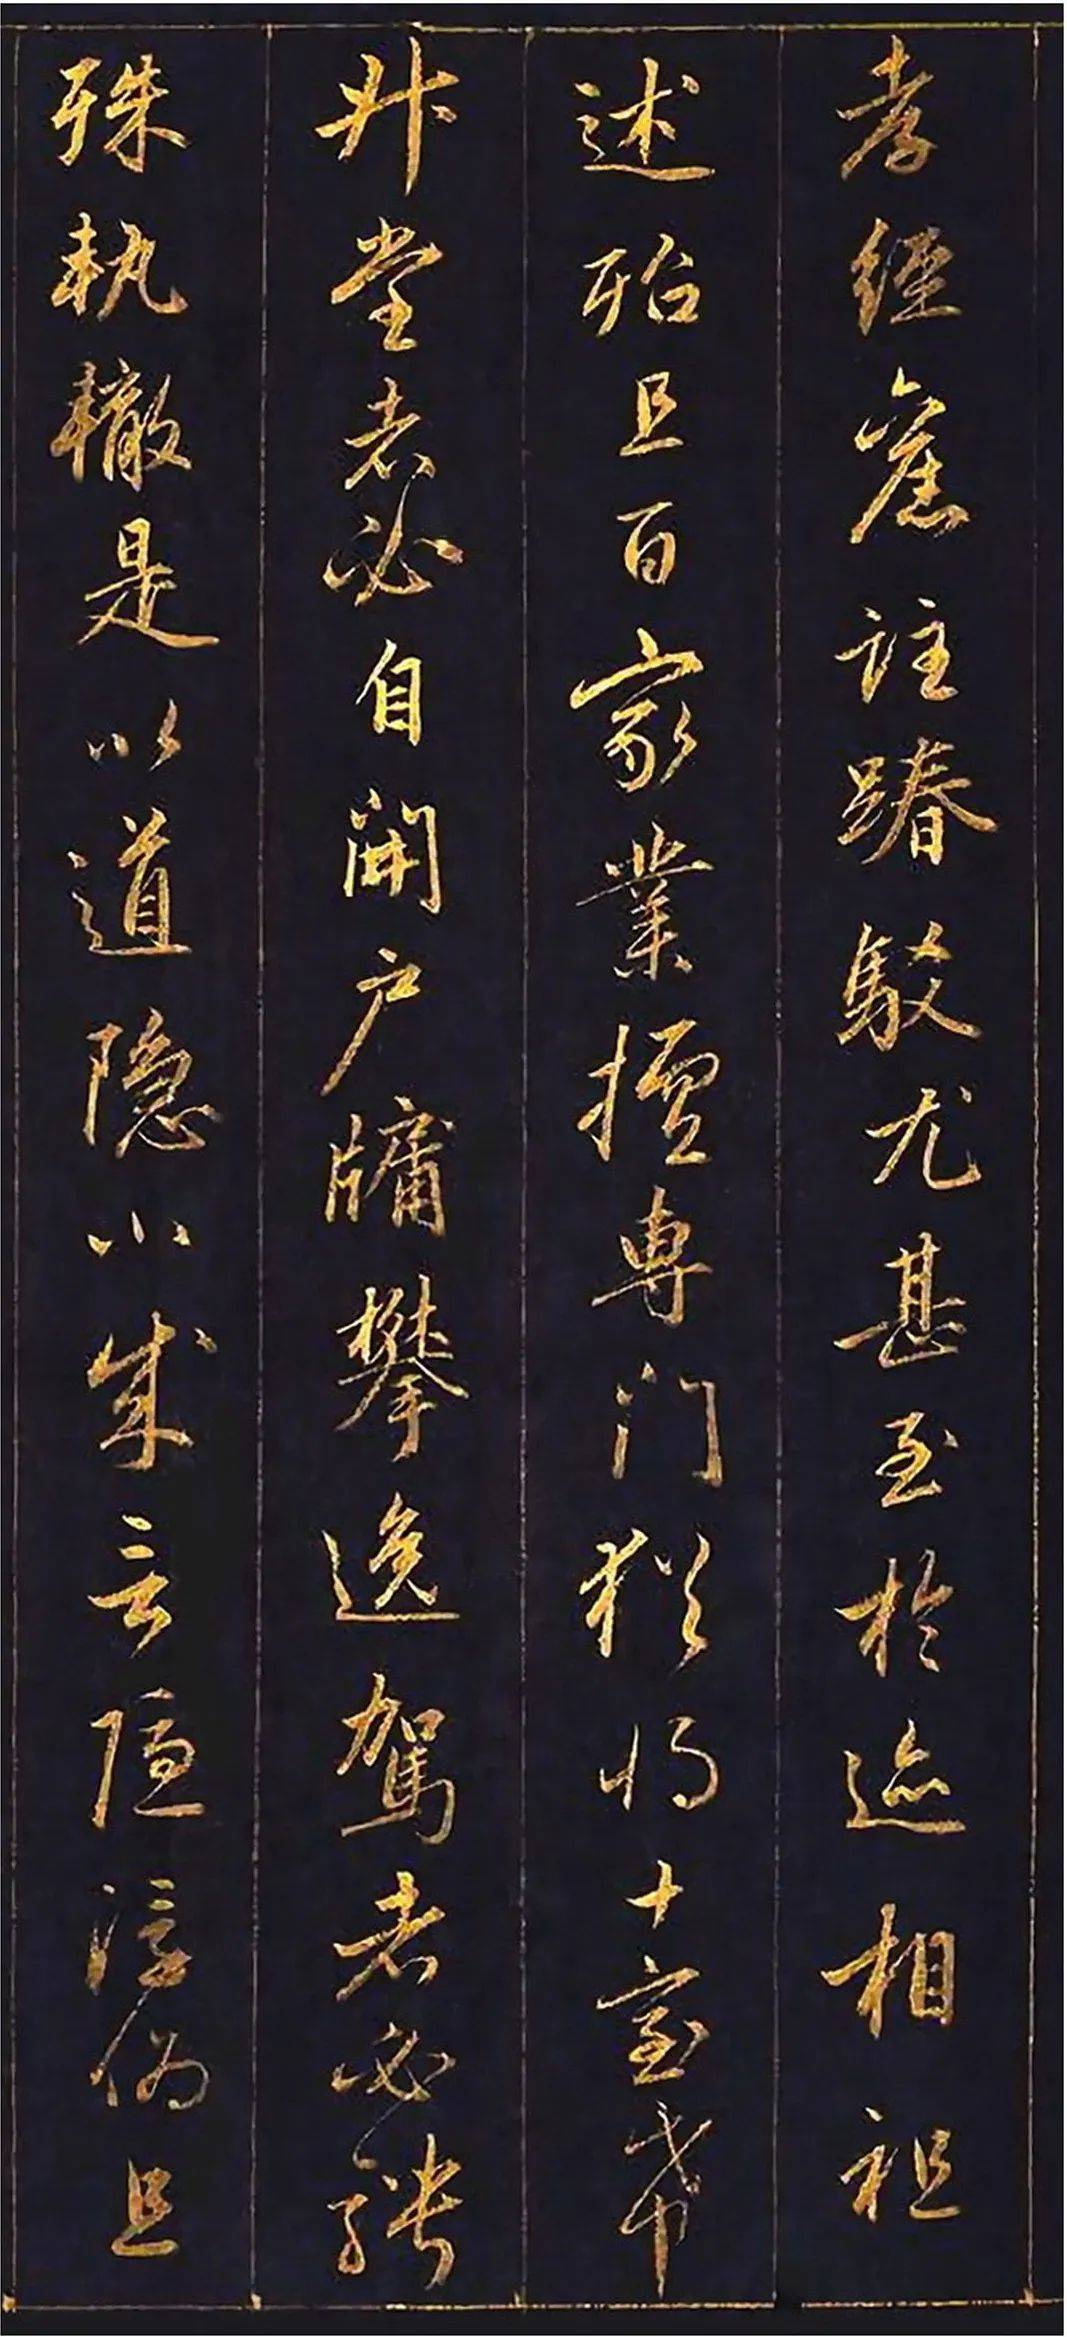 孝經舊註踳駮尤甚至於迹相祖
述殆且百家業擅專門猶將十室希
升堂者必自開戶牖攀逸駕者必騁
殊執轍是以道隐小成言隱浮偽且